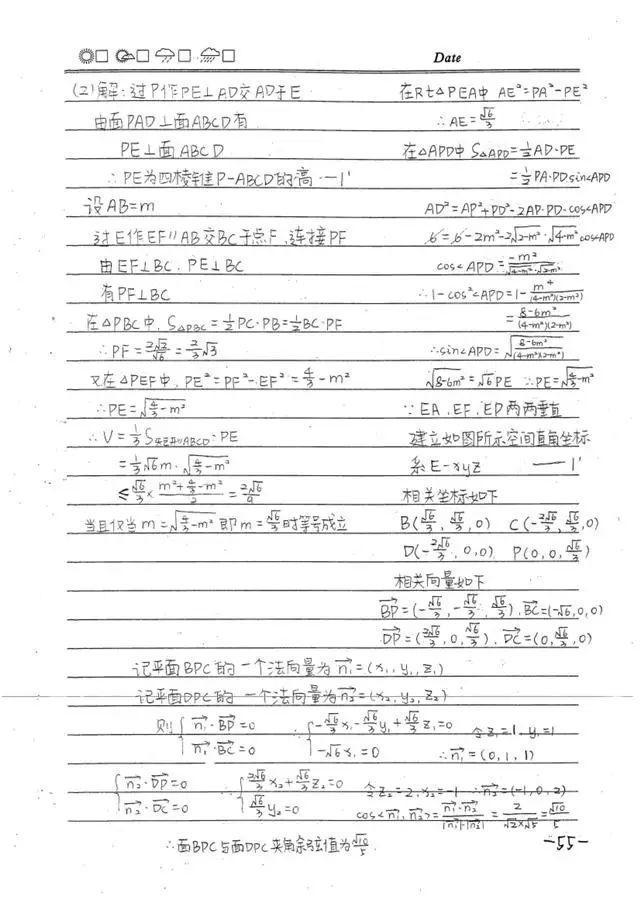 Date
(2)解:过P作PE⊥AD交AD于E
由面PAD⊥面ABCD有
PE⊥面ABCD
∴PE为四棱锥P-ABCD的高 —1'
设AB=m
过E作EF∥AB交BC于点F,连接PF
由EF⊥BC,PE⊥BC
有PF⊥BC
在△PBC中,S△PBC=½PC·PB=½BC·PF
∴PF=2√2/√6=2/3√3
又在△PEF中,PE²=PF²-EF²=4/3-m²
∴PE=√(4/3-m²)
∴V=1/3 S矩形ABCD·PE
=1/3√6m·√(4/3-m²)
≤√6/3×(m²+4/3-m²)/2=2√6/9
当且仅当m=√(4/3-m²)即m=√6/3时等号成立
在Rt△PEA中 AE²=PA²-PE²
∴AE=√6/3
在△APD中 S△APD=½AD·PE
=½PA·PD·sin<APD
AD²=AP²+PD²-2AP·PD·cos<APD
6=6-2m²-2√(2-m²)·√(4-m²)cos<APD
cos<APD=-m²/(√(4-m²)·√(2-m²))
∴1-cos²<APD=1-m⁴/((4-m²)(2-m²))
=(8-6m²)/((4-m²)(2-m²))
∴sin<APD=√((8-6m²)/((4-m²)(2-m²)))
√(8-6m²)=√6PE ∴PE=√(4/3-m²)
∵EA,EF,EP两两垂直
建立如图所示空间直角坐标
系E-xyz —1'
相关坐标如下
B(√6/3,√6/3,0) C(-2√6/3,√6/3,0)
D(-2√6/3,0,0) P(0,0,√6/3)
相关向量如下
BP→=(-√6/3,-√6/3,√6/3),BC→=(-√6,0,0)
DP→=(2√6/3,0,√6/3),DC→=(0,√6/3,0)
记平面BPC的一个法向量为n₁→=(x₁,y₁,z₁)
记平面DPC的一个法向量为n₂→=(x₂,y₂,z₂)
则{n₁→·BP→=0 ∴{-√6/3x₁-√6/3y₁+√6/3z₁=0 令z₁=1,y₁=1
n₁→·BC→=0 -√6x₁=0 ∴n₁→=(0,1,1)
{n₂→·DP→=0 {2√6/3x₂+√6/3z₂=0 令z₂=2,x₂=-1 ∴n₂→=(-1,0,2)
n₂→·DC→=0 √6/3y₂=0 cos<n₁→,n₂→>=n₁→·n₂→/|n₁→|·|n₂→|=2/(√2×√5)=√10/5
∴面BPC与面DPC夹角余弦值为√10/5
-55-